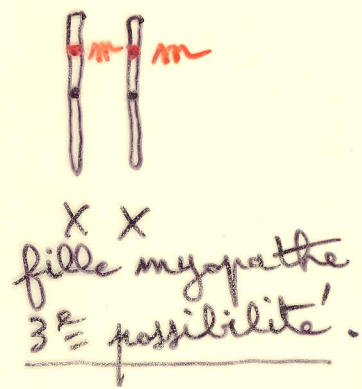 m m
X X
fille myopathe
3e possibilité.